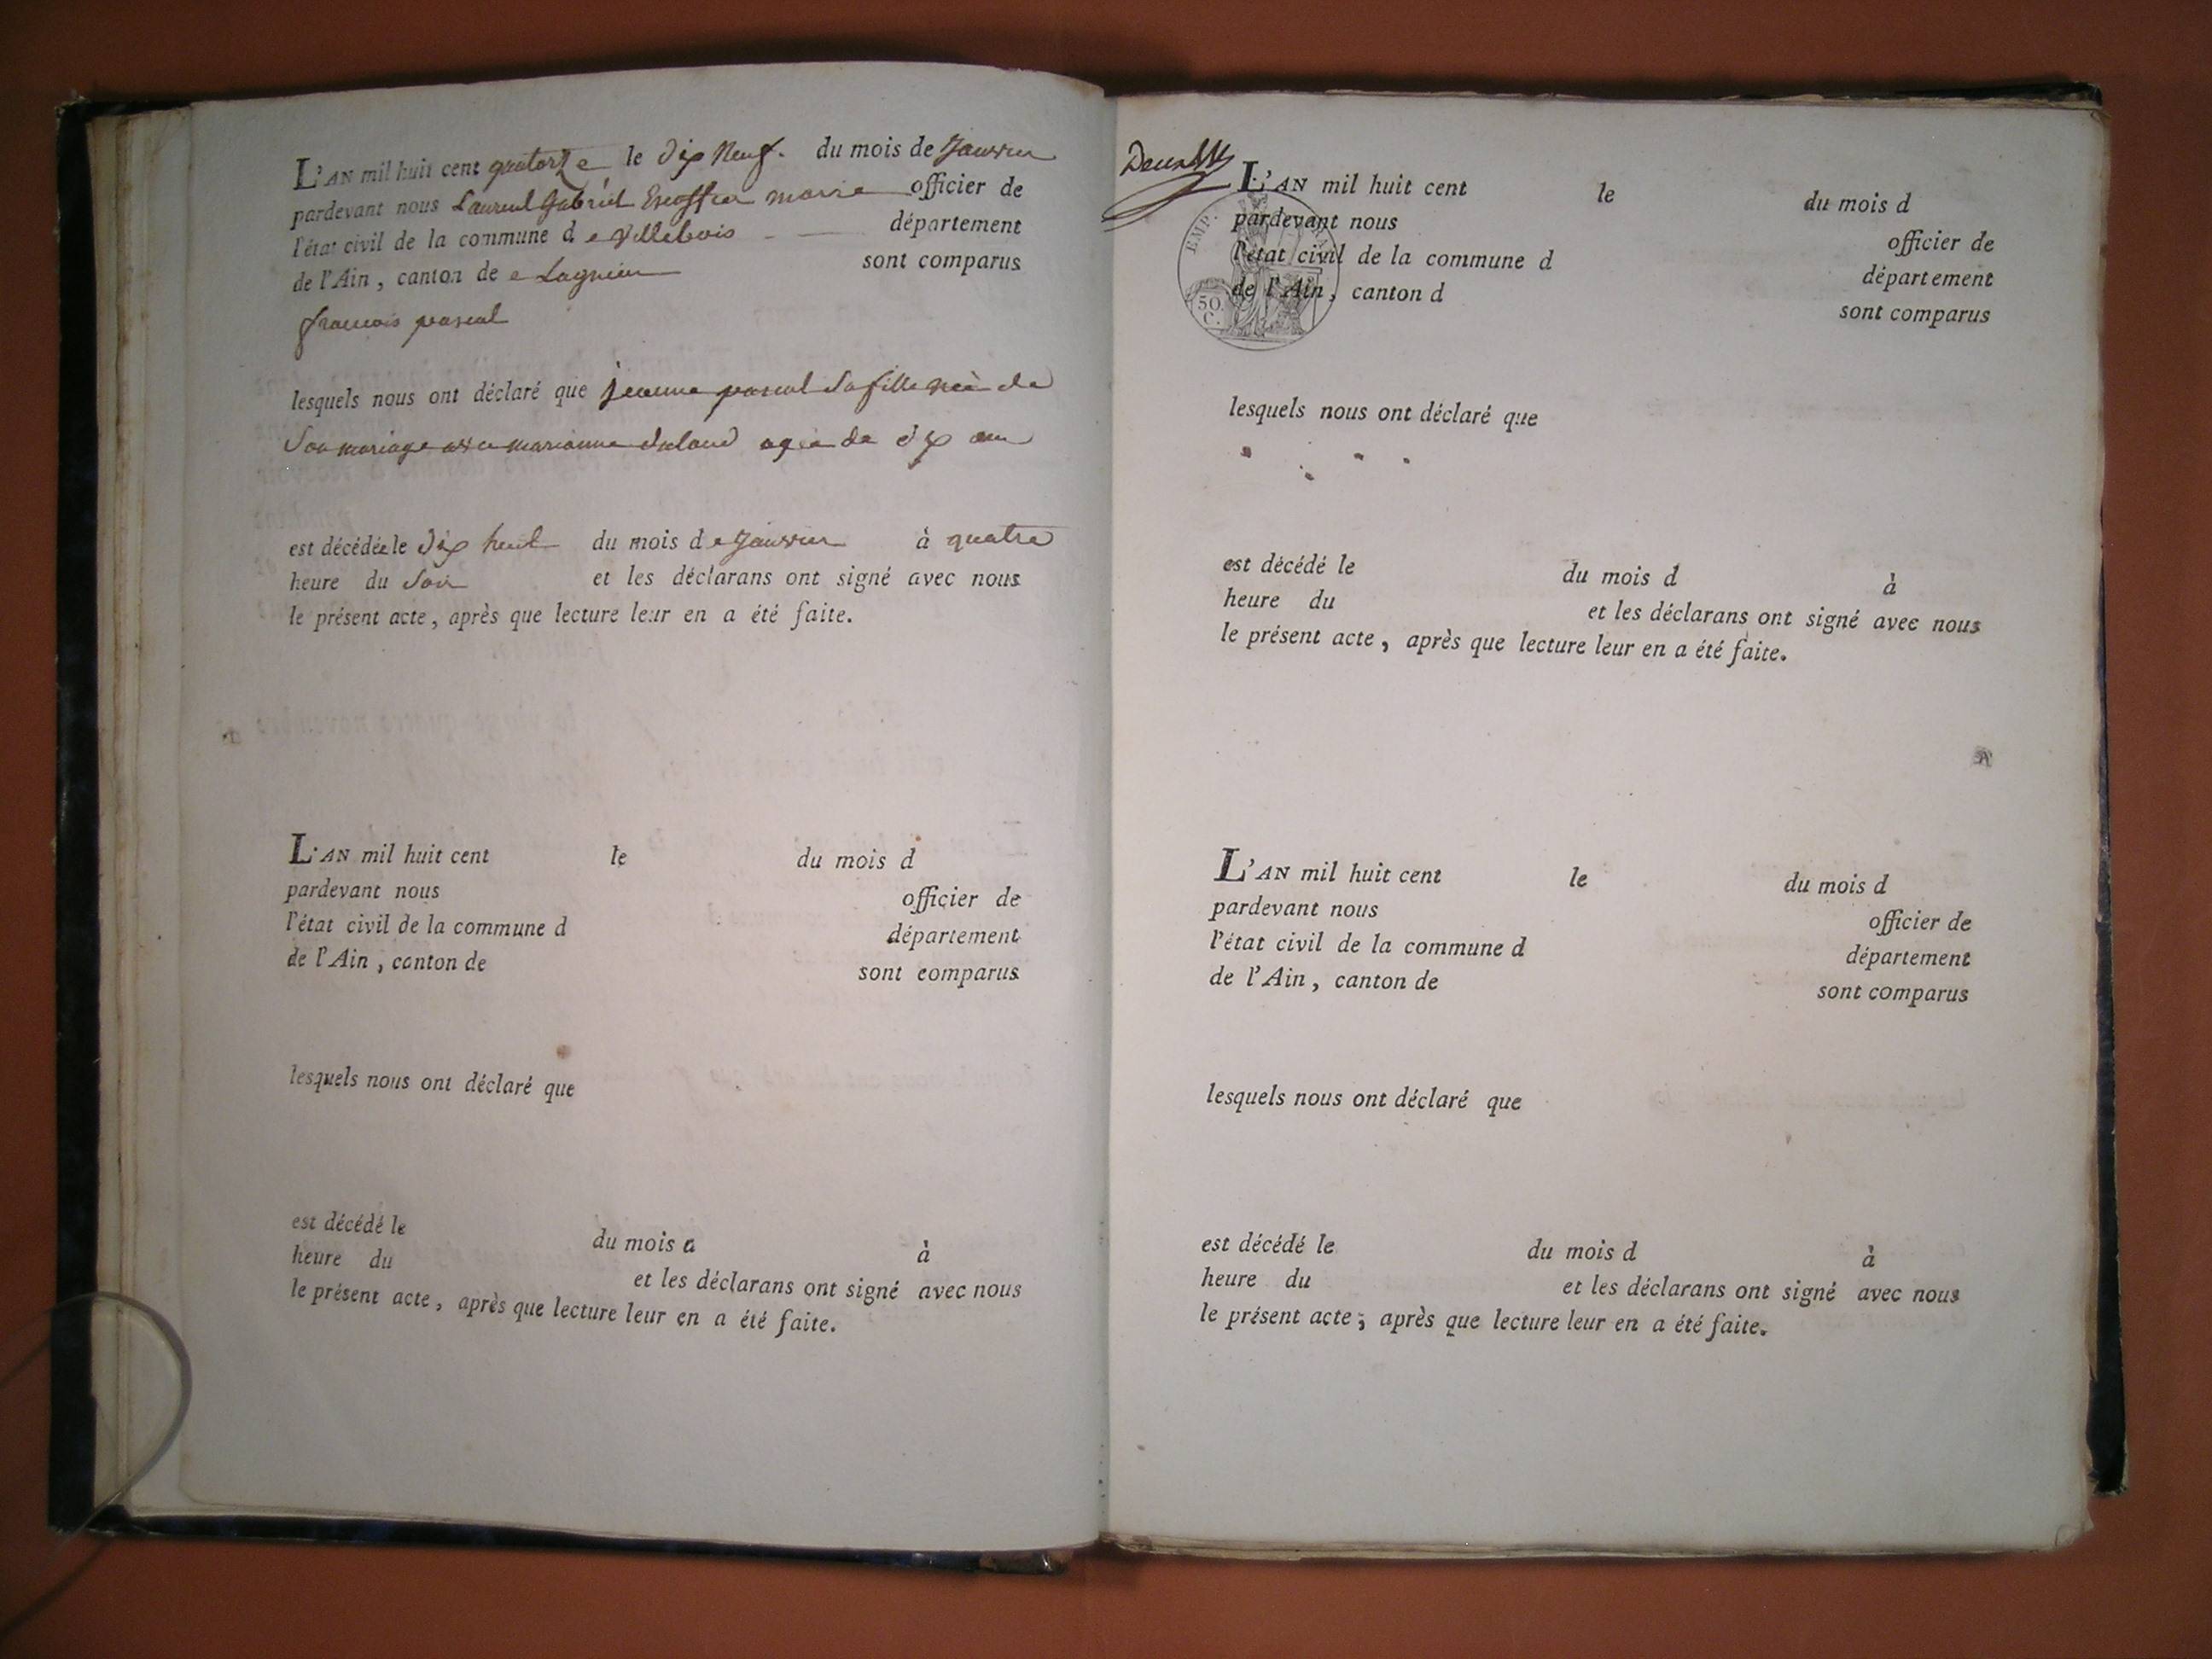 L'AN mil huit cent quatorze le dix Neuf. du mois de Janvier
pardevant nous Laurent Gabriel Escoffier maire officier de
l'état civil de la commune d e Villebois département
de l'Ain, canton de e Lagnieu sont comparus
françois pascal
lesquels nous ont déclaré que jeanne pascal Sa fille née de
Son mariage avec marianne agée de dix ans
est décédée le dix huit du mois d e Janvier à quatre
heure du Soir et les déclarans ont signé avec nous
le présent acte, après que lecture leur en a été faite.
L'AN mil huit cent le du mois d
pardevant nous officier de
l'état civil de la commune d département
de l'Ain, canton de sont comparus
lesquels nous ont déclaré que
est décédé le du mois d à
heure du et les déclarans ont signé avec nous
le présent acte, après que lecture leur en a été faite.
L'AN mil huit cent le du mois d
pardevant nous officier de
l'état civil de la commune d département
de l'Ain, canton d sont comparus
EMP.
50
C.
lesquels nous ont déclaré que
est décédé le du mois d à
heure du et les déclarans ont signé avec nous
le présent acte, après que lecture leur en a été faite.
L'AN mil huit cent le du mois d
pardevant nous officier de
l'état civil de la commune d département
de l'Ain, canton de sont comparus
lesquels nous ont déclaré que
est décédé le du mois d à
heure du et les déclarans ont signé avec nous
le présent acte; après que lecture leur en a été faite.